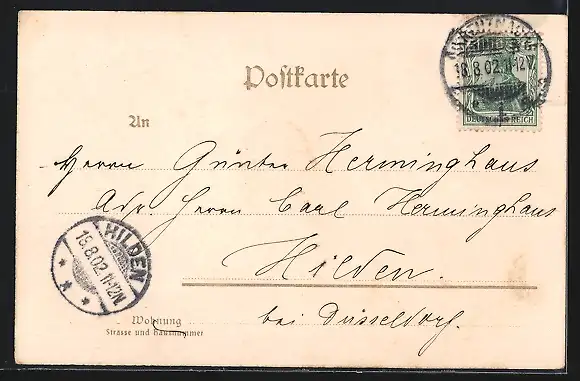 Postkarte
KREUZNACH
18.8.02.11-12V.
DEUTSCHES REICH
An
Herrn Günter Herminghaus
Adr. Herrn Carl Herminghaus
Hilden.
bei Düsseldorf.
HILDEN
18.8.02.11-12N
Wohnung
Strasse und Hausnummer